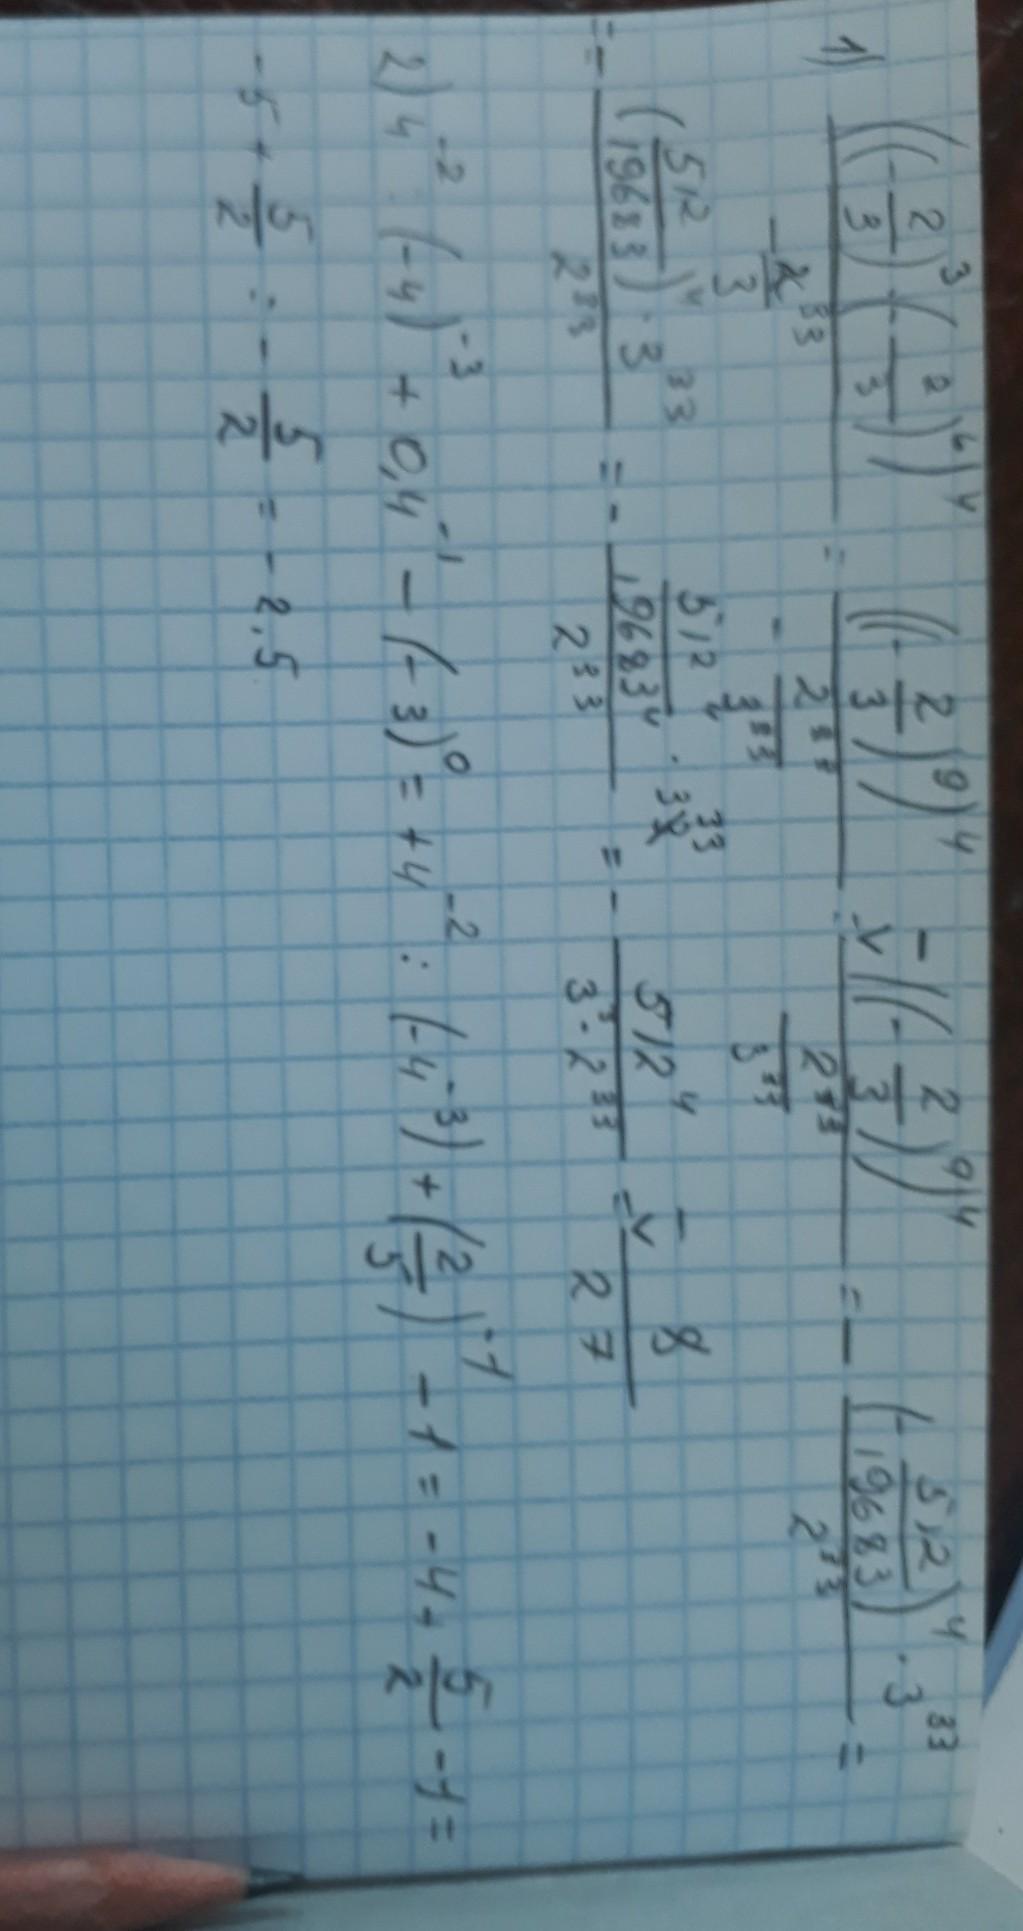 1) ((-2/3)^3 (-2/3)^6)^4 / -2/3^33 = ((-2/3)^9)^4 / -2^33/3^33 = - ((-2/3)^9)^4 / 2^33/3^33 = - (-512/19683)^4 · 3^33 / 2^33 =
= - (512/19683)^4 · 3^33 / 2^33 = - 512^4/19683^4 · 3^33 / 2^33 = - 512^4 / 3^3 · 2^33 = - 8/27
2) 4^-2 : (-4)^-3 + 0,4^-1 - (-3)^0 = +4^-2 : (-4^-3) + (2/5)^-1 - 1 = -4 + 5/2 - 1 =
-5 + 5/2 = - 5/2 = -2.5